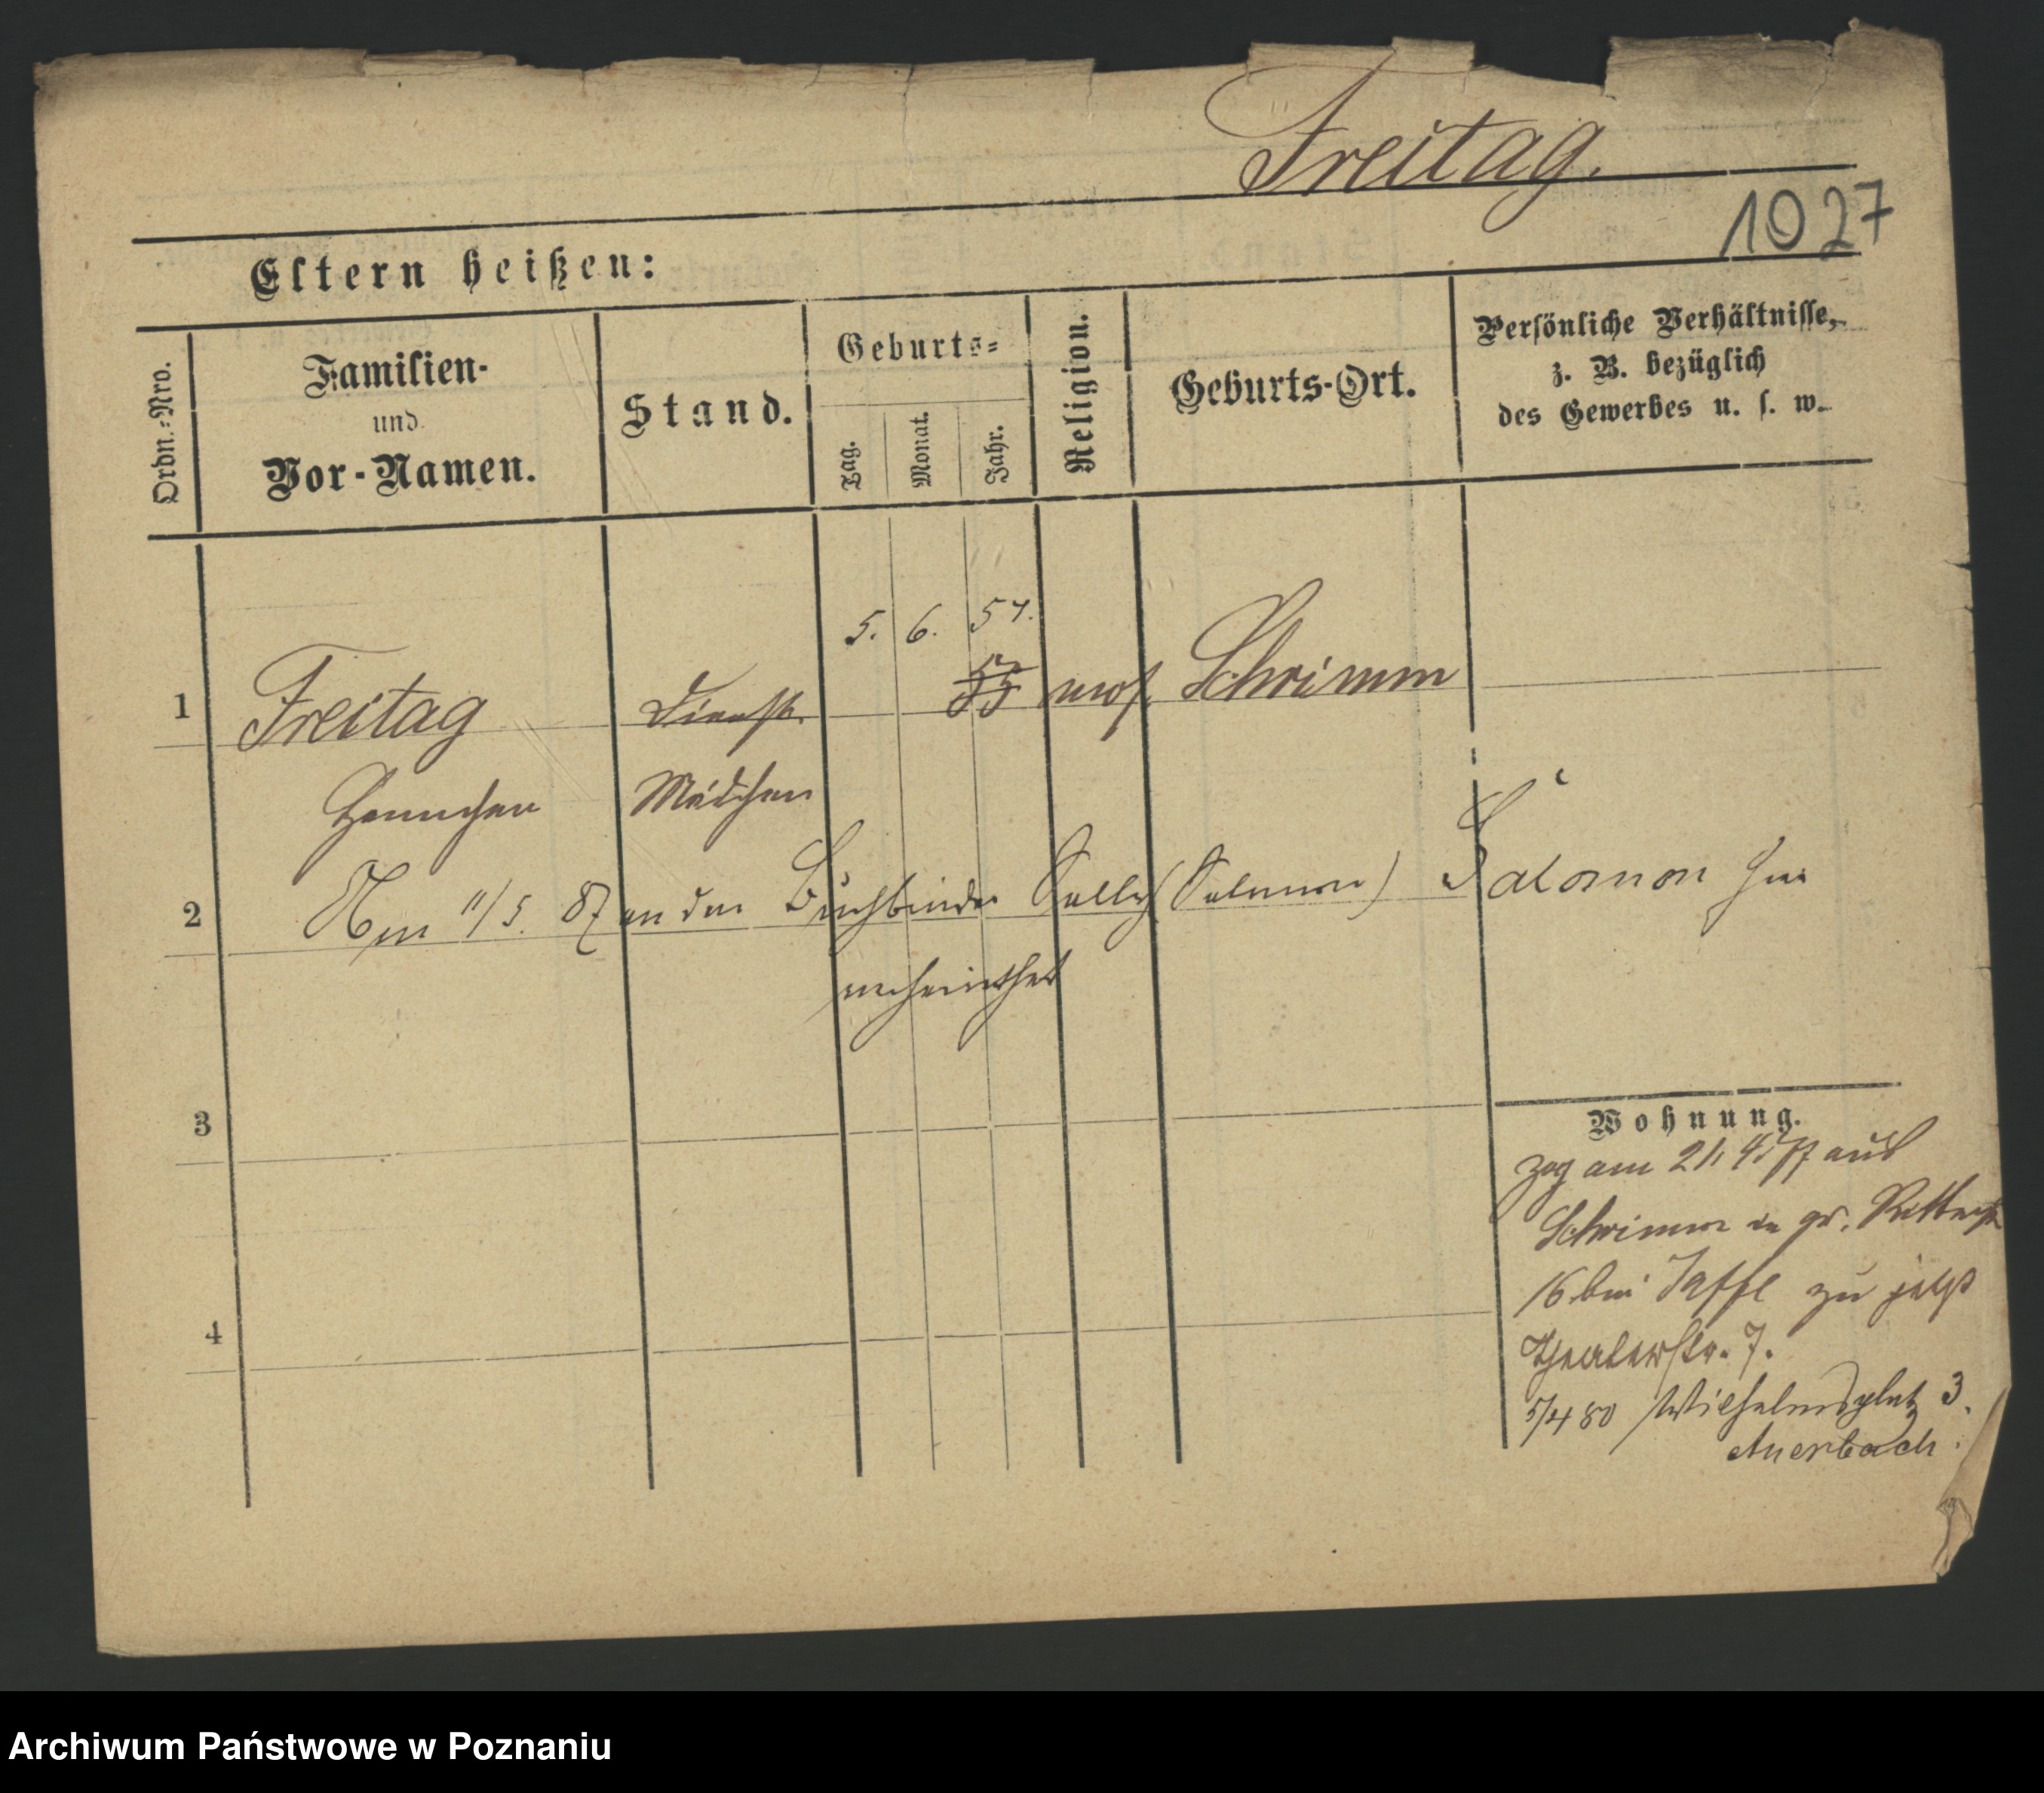 Freitag.
1027
Eltern heißen:
Ordn.-Nro.
Familien-
und
Vor-Namen.
Stand.
Geburts-
Tag.
Monat.
Jahr.
Religion.
Geburts-Ort.
Persönliche Verhältnisse,
z. B. bezüglich
des Gewerbes u. s. w.
5. 6. 57.
1 Freitag Dienst 55 mos. Schrimm
Hannchen Mädchen
2 Am 11/5. 87 an den Buchbinder Sally (Salomon) Salomon hier
verheirathet
3
Wohnung.
zog am 21. 4. 77 aus
Schrimm in gr. Ritterstr
16 bei Jaffe zu jetzt
4
Theaterstr. 7.
5/4 80 Wilhelmsplatz 3.
Auerbach.
Archiwum Państwowe w Poznaniu